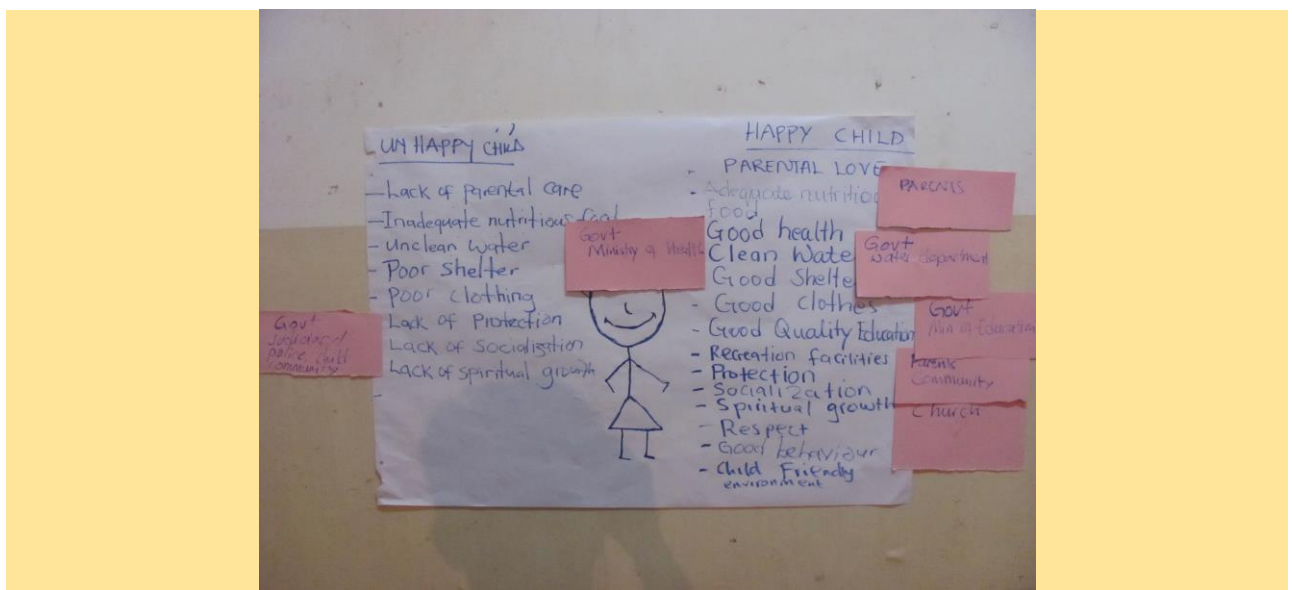 UN HAPPY CHILD
- Lack of parental care
- Inadequate nutritious food
- Unclean Water
- Poor Shelter
- Poor clothing
Lack of Protection
Lack of Socialisation
Lack of spiritual growth
Govt
police, child
community
Govt
Ministry of Health
HAPPY CHILD
- PARENTAL LOVE
- Adequate nutritio
food
Good health
Clean Wate
Good Shelte
- Good clothes
- Good Quality Education
- Recreation facilities
- Protection
- Socialization
- Spiritual growth
- Respect
- Good behaviour
- Child Friendly
environment
PARENTS
Govt
Water department
Govt
Min of Education
Parents
Community
Church